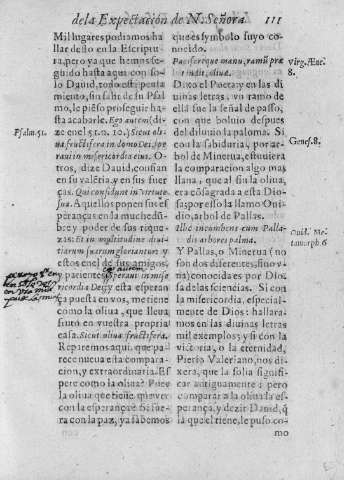 de la Expectacion de N. Señora 111
Mil lugares podiamos ha
llar desto en la Escriptu
ra, pero ya que hemos se
guido hasta aqui con so
lo Dauid, todo este pensa
miento, sin salir de su Psal
mo, le piēso proseguir ha
sta acabarle. Ego autem (di
ze en el 51. n. 10.) Sicut oli-
ua fructifera in domo Dei, spe
raui in misericordia eius. O-
tros, dize Dauid, confian
en su valētia, y en sus fuer
ças. Qui confidunt in virtute
sua. Aquellos ponen sus es
peranças en la muchedū-
bre, y poder de sus rique-
zas. Et in multitudine diui-
tiarum suarum gloriantur: y
estos en el de sus amigos,
y parientes;
cordia Dei, y esta esperan
ça puesta en vos, me tiene
como la oliua, que lleua
fruto en vuestra propria
casa. Sicut oliua fructifera.
Reparemos aqui, que pa-
rece nueua esta compara-
cion, y extraordinaria. Es
pere como la oliua? Pues
la oliua que tiene que ver
con la esperança? Si fue-
ra con la paz, ya sabemos
Psalm. 51.
que es symbolo suyo co-
nocido.
Paciferaque manu, ramū præ
tendit, oliuæ.
Dixo el Poeta: y en las di
uinas letras, vn ramo de
ella fue la señal de passo,
con que boluio despues
del diluuio la paloma. Si
con la sabiduria, por ar-
bol de Minerua, estuuiera
la comparacion algo mas
llana, que al fin la oliua,
era cōsagrada a esta Dio-
sa; por esso la llamo Oui-
dio, arbol de Pallas.
Illic incumbens cum Palla-
dis arbore palmæ.
Y Pallas, o Minerua (no
son dos diferentes, sino v-
na) conocida es por Dio-
sa de las sciencias. Si con
la misericordia, especial-
mente de Dios: hallara-
mos en las diuinas letras
mil exemplos; y si con la
victoria, o la eternidad,
Pierio Valeriano, nos di-
xera, que la solia signifi-
car antiguamente: pero
comparar a la oliua la es
perança, y dezir Dauid, q̄
la que el tiene, le puso co-
mo
Virg. Æne.
8.
Genes. 8.
Ouid. Me-
tamorph. 6